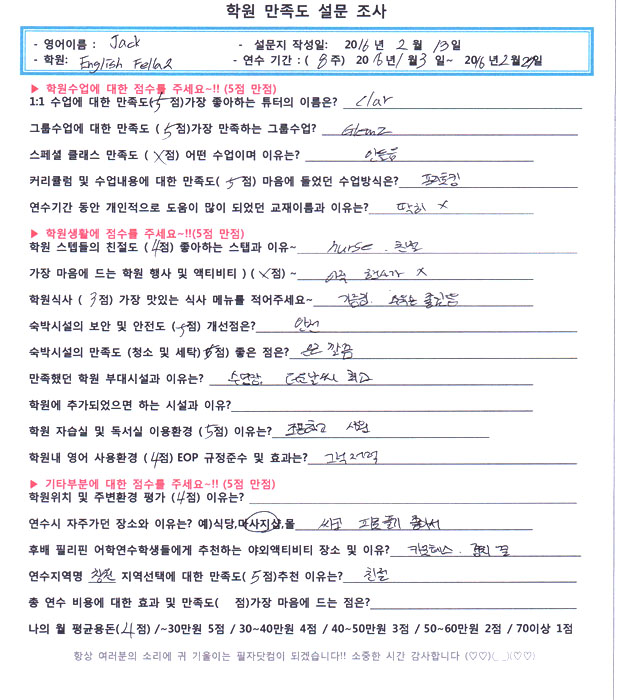 학원 만족도 설문 조사
- 영어이름 : Jack - 설문지 작성일: 2016 년 2 월 13일
- 학원: English Fella2 - 연수 기간 : ( 8 주) 2016년 1월 3 일~ 2016년 2월 27일
▶ 학원수업에 대한 점수를 주세요~!! (5점 만점)
1:1 수업에 대한 만족도( 5 점)가장 좋아하는 튜터의 이름은? Clar
그룹수업에 대한 만족도 ( 5점) 가장 만족하는 그룹수업? Glenz
스페셜 클래스 만족도 ( X점) 어떤 수업이며 이유는? 안들음
커리큘럼 및 수업내용에 대한 만족도( 5 점) 마음에 들었던 수업방식은? 프리토킹
연수기간 동안 개인적으로 도움이 많이 되었던 교재이름과 이유는? 딱히 X
▶ 학원생활에 점수를 주세요~!!(5점 만점)
학원 스텝들의 친절도 ( 4점) 좋아하는 스탭과 이유~ nurse. 친절
가장 마음에 드는 학원 행사 및 액티비티 ) ( X점) ~ 아직 행사가 X
학원식사 ( 3점) 가장 맛있는 식사 메뉴를 적어주세요~
숙박시설의 보안 및 안전도 ( 5점) 개선점은? 안전
숙박시설의 만족도 (청소 및 세탁)( 5점) 좋은 점은? 깔끔
만족했던 학원 부대시설과 이유는? 수영장, 더운날씨 최고
학원에 추가되었으면 하는 시설과 이유?
학원 자습실 및 독서실 이용환경 ( 5점) 이유는? 조용하고 시원
학원내 영어 사용환경 ( 4점) EOP 규정준수 및 효과는? 그럭저럭
▶ 기타부분에 대한 점수를 주세요~!! (5점 만점)
학원위치 및 주변환경 평가 ( 4점) 이유는?
연수시 자주가던 장소와 이유는? 예)식당,마사지샵,몰
후배 필리핀 어학연수학생들에게 추천하는 야외액티비티 장소 및 이유? 카모테스.
연수지역명 지역선택에 대한 만족도( 5 점)추천 이유는? 친절
총 연수 비용에 대한 효과 및 만족도( 점)가장 마음에 드는 점은?
나의 월 평균용돈( 4점) /~30만원 5점 / 30~40만원 4점 / 40~50만원 3점 / 50~60만원 2점 / 70이상 1점
항상 여러분의 소리에 귀 기울이는 필자닷컴이 되겠습니다!! 소중한 시간 감사합니다 (♡♡)(__)(♡♡)